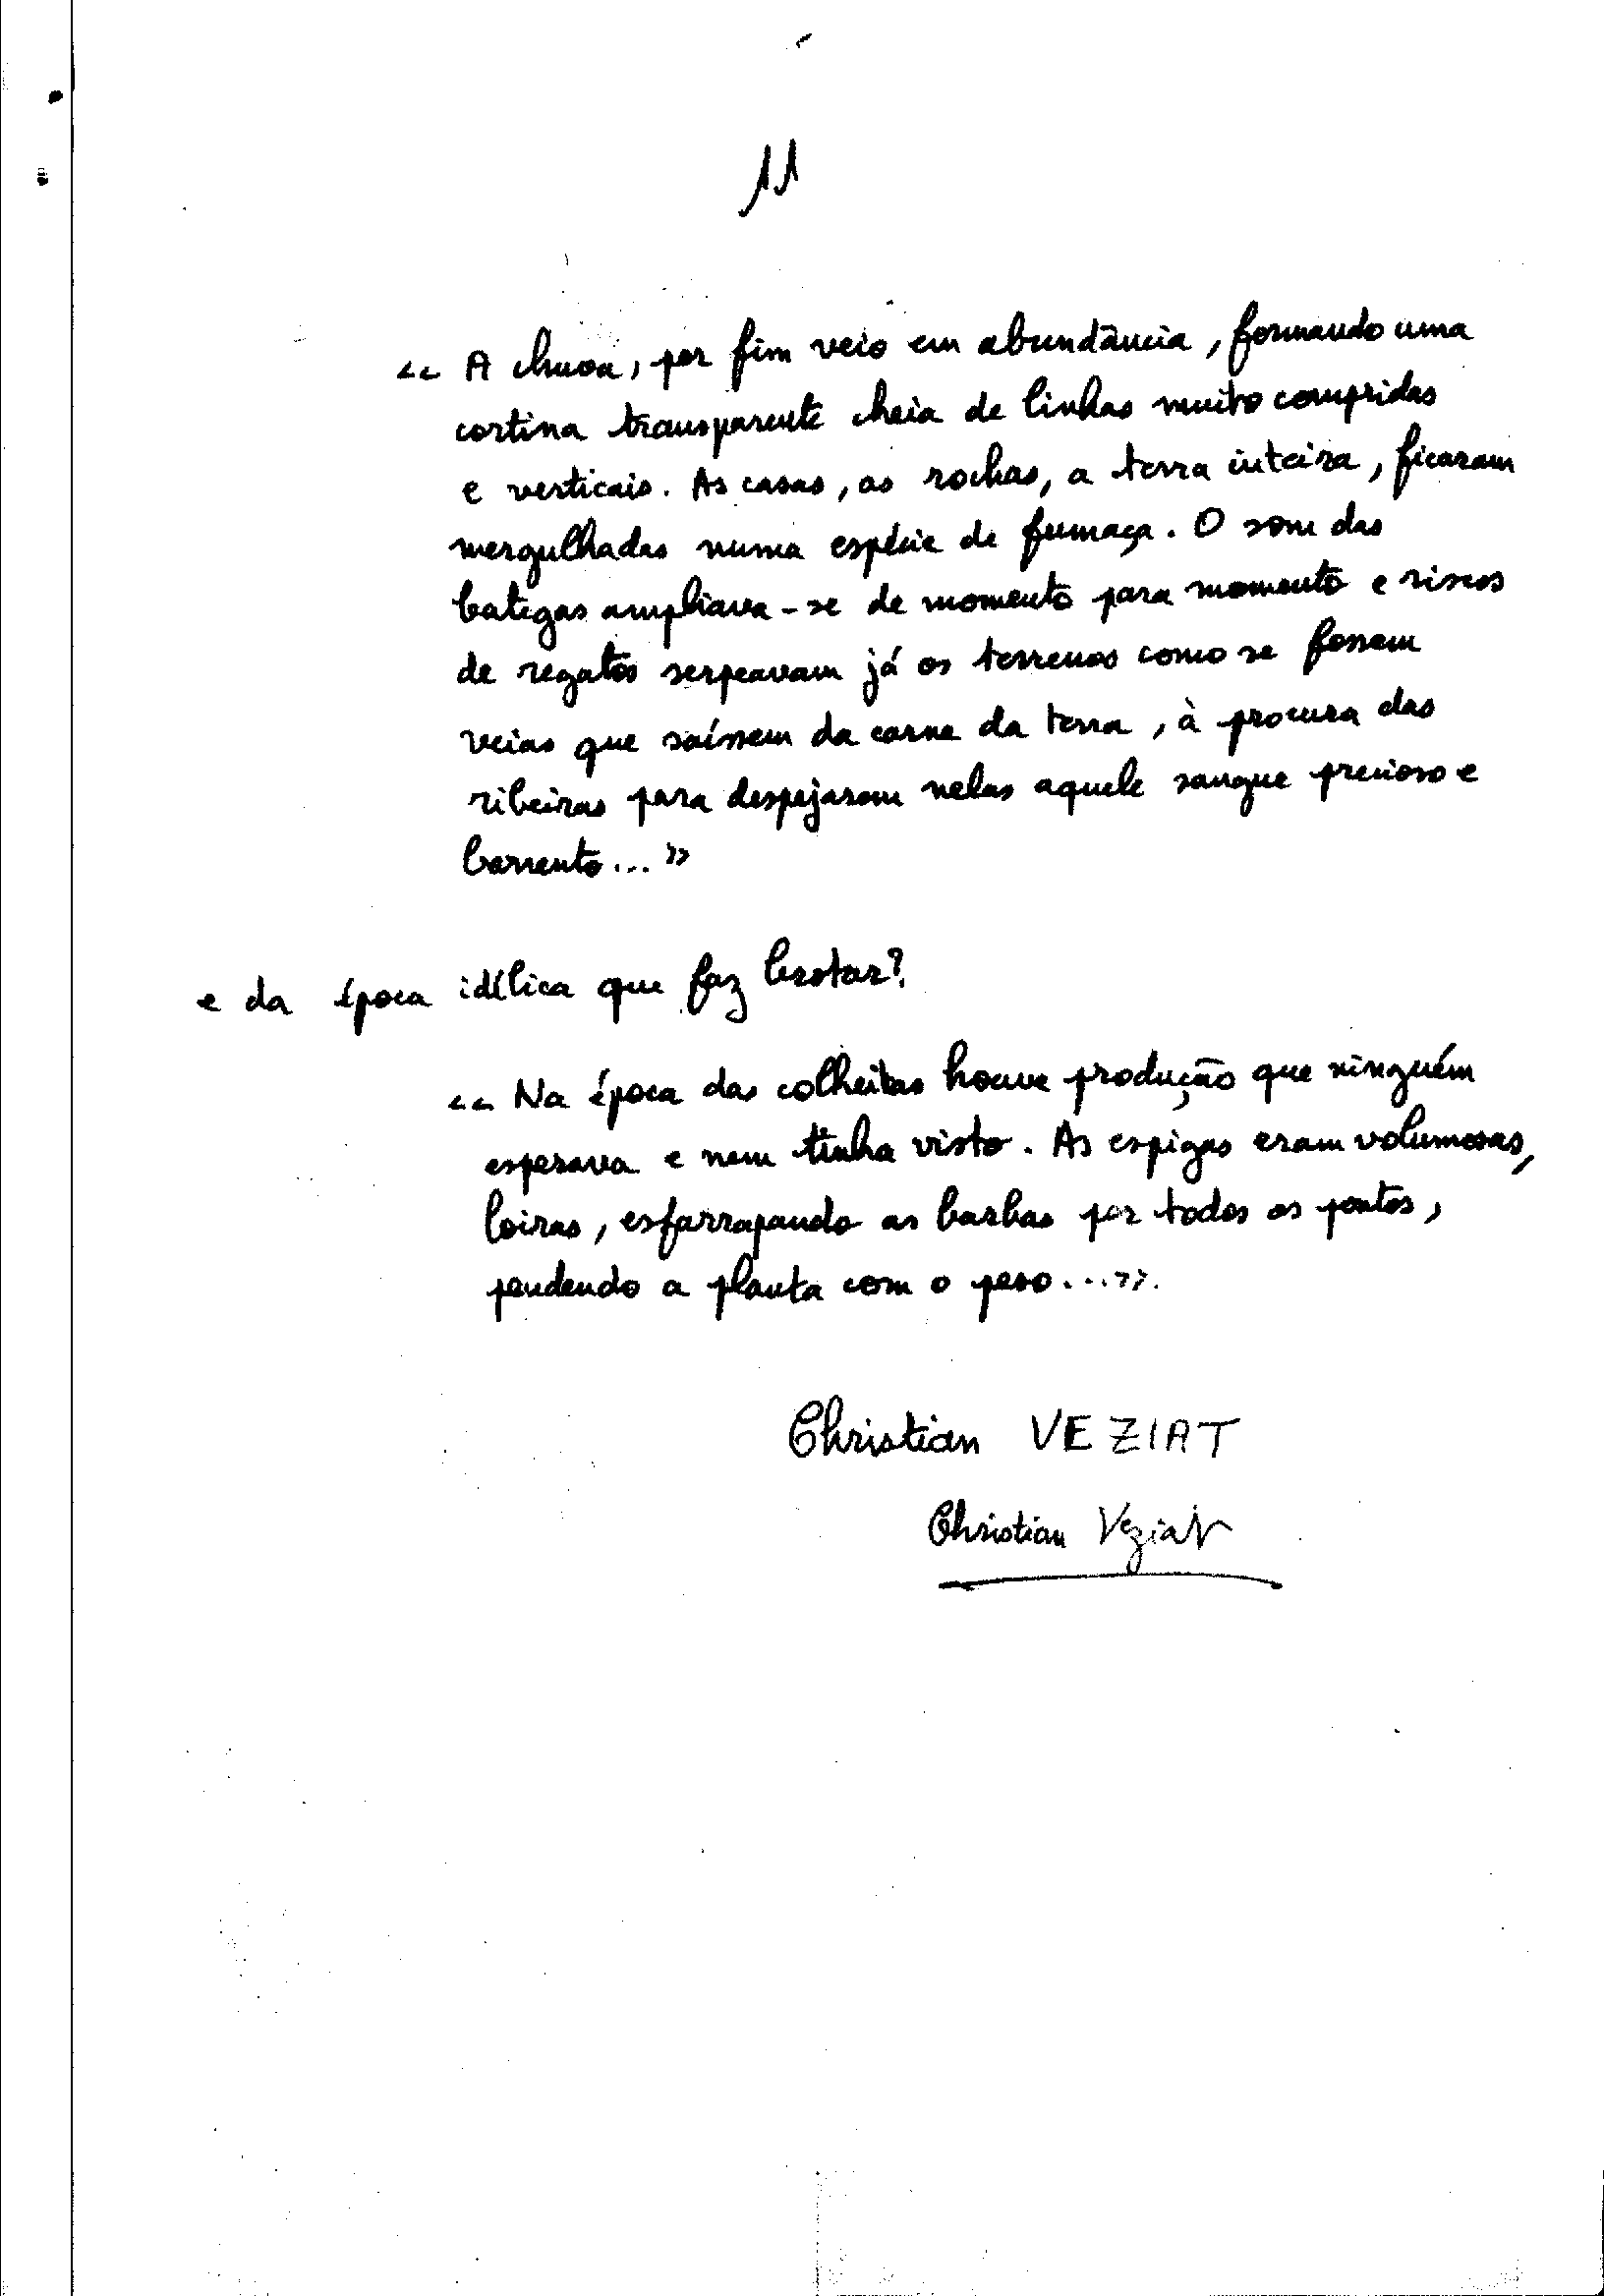 11
<< A chuva, por fim veio em abundância, formando uma
cortina transparente cheia de linhas muito compridas
e verticais. As casas, as rochas, a terra inteira, ficaram
mergulhadas numa espécie de fumaça. O som das
bategas ampliava-se de momento para momento e riscos
de regatos serpeavam já os terrenos como se fossem
veias que saíssem da carne da terra, à procura das
ribeiras para despejarem nelas aquele sangue precioso e
barrento... >>
e da época idílica que faz brotar?
<< Na época das colheitas houve produção que ninguém
esperava e nem tinha visto. As espigas eram volumosas,
loiras, esfarrapando as barbas por todos os pontos,
pendendo a planta com o peso...>>.
Christian VEZIAT
Christian Veziat